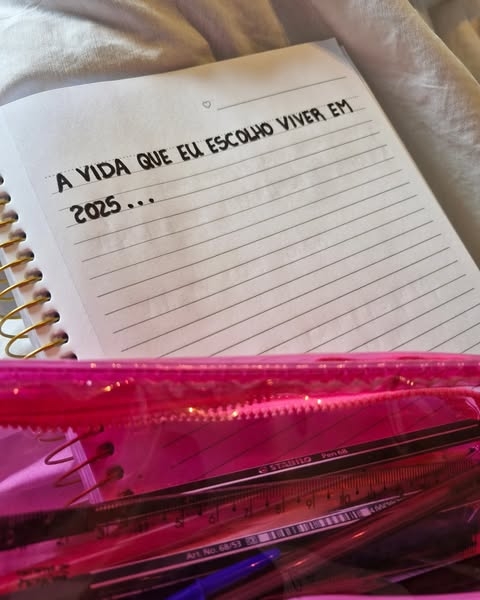 A VIDA QUE EU ESCOLHO VIVER EM
2025...
STABILO Pen 68
Art. No. 68/53